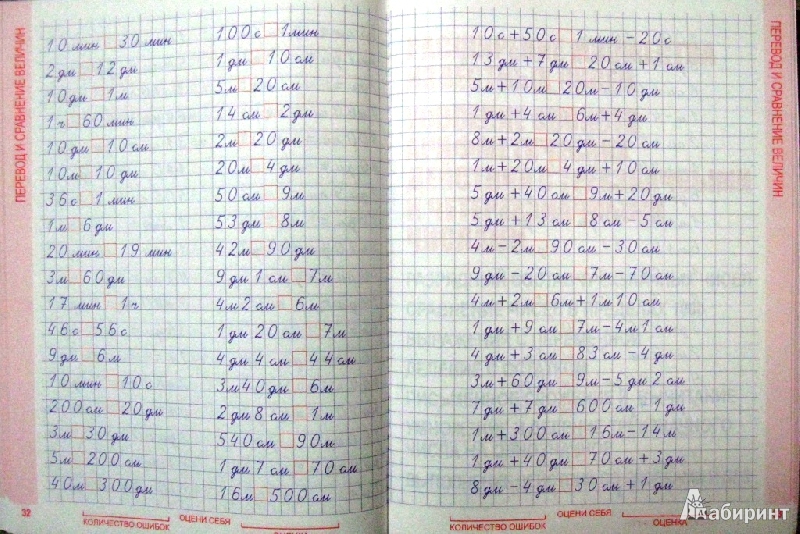 ПЕРЕВОД И СРАВНЕНИЕ ВЕЛИЧИН
10 мин □ 30 мин
2 дм □ 12 дм
10 дм □ 1 м
1 ч □ 60 мин
10 дм □ 10 см
10 м □ 10 дм
36 с □ 1 мин
1 м □ 6 дм
20 мин □ 19 мин
3 м □ 60 дм
17 мин □ 1 ч
46 с □ 56 с
9 дм □ 6 м
10 мин □ 10 с
200 см □ 20 дм
3 м □ 30 дм
5 м □ 200 см
40 м □ 300 дм
100 с □ 1 мин
1 дм □ 10 см
5 м □ 20 см
14 см □ 2 дм
2 м □ 20 дм
20 м □ 4 дм
50 см □ 9 м
53 дм □ 8 м
42 м □ 90 дм
9 дм 1 см □ 7 м
4 м 2 см □ 6 м
1 дм 20 см □ 7 м
4 дм 4 см □ 44 см
3 м 40 дм □ 6 м
2 дм 8 см □ 1 м
540 см □ 90 м
1 дм 7 см □ 70 см
16 м □ 500 см
32
КОЛИЧЕСТВО ОШИБОК
ОЦЕНИ СЕБЯ
ОЦЕНКА
10 с + 50 с □ 1 мин - 20 с
13 дм + 7 дм □ 20 см + 1 см
5 м + 10 м □ 20 м - 10 дм
1 дм + 4 см □ 6 м + 4 дм
8 м + 2 м □ 20 дм - 20 см
1 м + 20 м □ 4 дм + 10 см
5 дм + 40 см □ 9 м + 20 дм
5 дм + 13 см □ 8 см - 5 см
4 м - 2 м □ 90 см - 30 см
9 дм - 20 см □ 7 м - 70 см
4 м + 2 м □ 6 м + 1 м 10 см
1 дм + 9 см □ 7 м - 4 м 1 см
4 дм + 3 см □ 83 см - 4 дм
3 м + 60 дм □ 9 м - 5 дм 2 см
7 дм + 7 дм □ 600 см - 1 дм
1 м + 300 см □ 16 м - 14 м
1 дм + 40 дм □ 70 см + 3 дм
8 дм - 4 дм □ 30 см + 1 дм
КОЛИЧЕСТВО ОШИБОК
ОЦЕНИ СЕБЯ
ОЦЕНКА
ПЕРЕВОД И СРАВНЕНИЕ ВЕЛИЧИН
Лабиринт